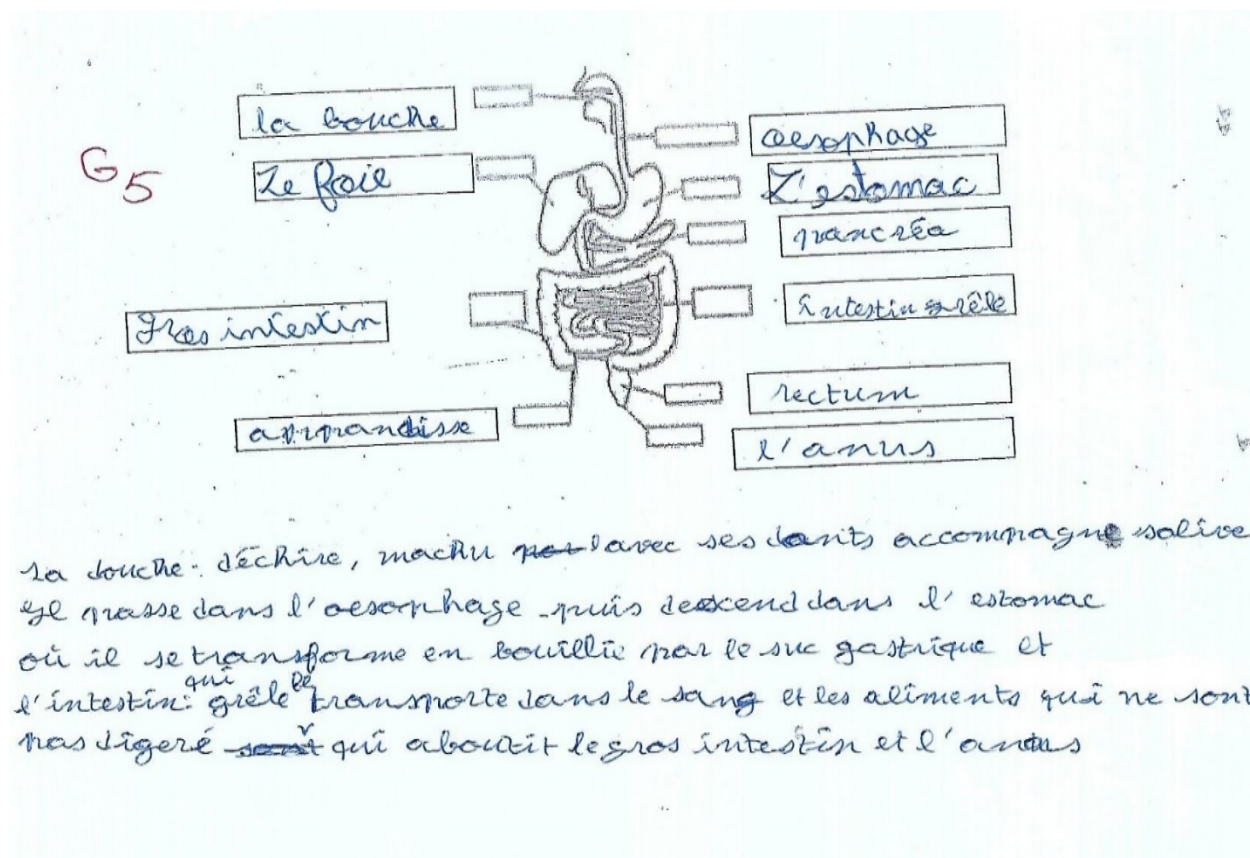 la bouche
oesophage
G5
Le foie
L'estomac
pancréa
Gros intestin
intestin grêle
rectum
appandisse
l'anus
La bouche: déchire, machu avec ses dants accompagne salive
Il passe dans l'oesophage puis descend dans l'estomac
où il se transforme en bouillie par le suc gastrique et
l'intestin: grêle qui le transporte dans le sang et les aliments qui ne sont
pas digeré qui aboutit le gros intestin et l'anus